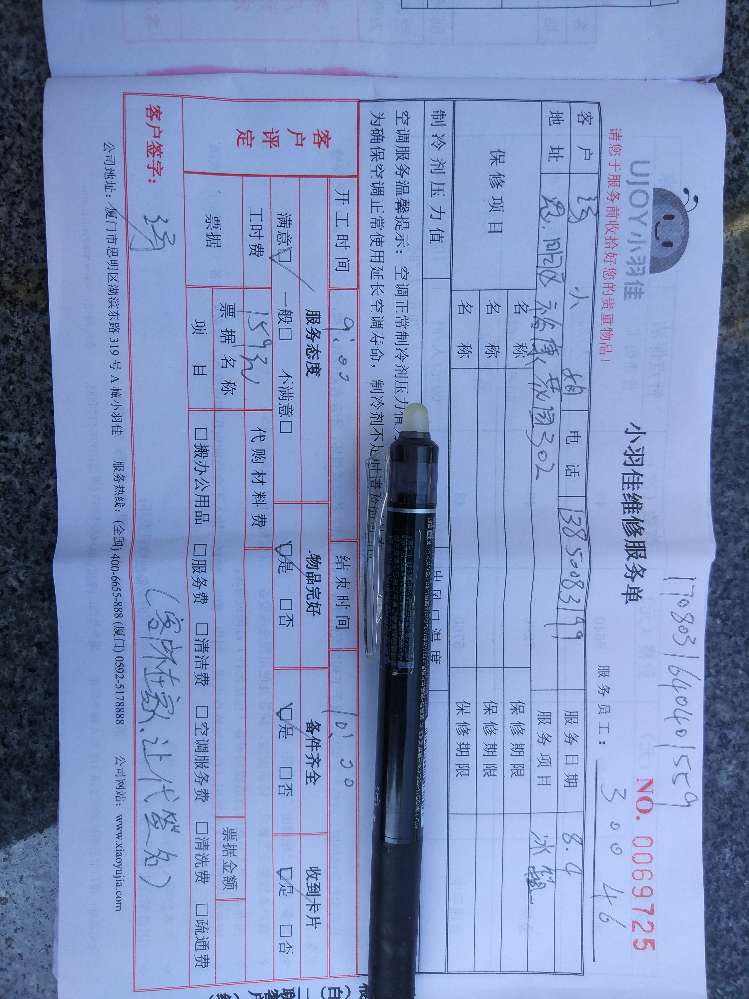 1708031640401559
UJOY小羽佳
小羽佳维修服务单
NO. 0069725
请您于服务前收拾好您的贵重物品!
服务员工: 30046
客户 汤小姐 电话 13850083199 服务日期 8.9
地址 思明区 302 服务项目 冰箱
保修项目 名称 保修期限
名称 保修期限
名称 保修期限
制冷剂压力值 出风口温度
空调服务温馨提示:空调正常制冷剂压力值
为确保空调正常使用延长空调寿命,制冷剂不足
客户评定
开工时间 9:00 结束时间 10:30
服务态度 物品完好 备件齐全 收到卡片
满意□ 一般□ 不满意□ □是 □否 □是 □否 □是 □否
工时费 159元 代购材料费
票据 票据名称 票据金额
项目 □搬办公用品 □服务费 □清洁费 □空调服务费 □清洗费 □疏通费
客户签字: 汤 (客户在家,让代签名)
公司地址:厦门市思明区湖滨东路319号A幢小羽佳 服务热线:(全国)400-6655-888 (厦门)0592-5178888 公司网站:www.xiaoyujia.com